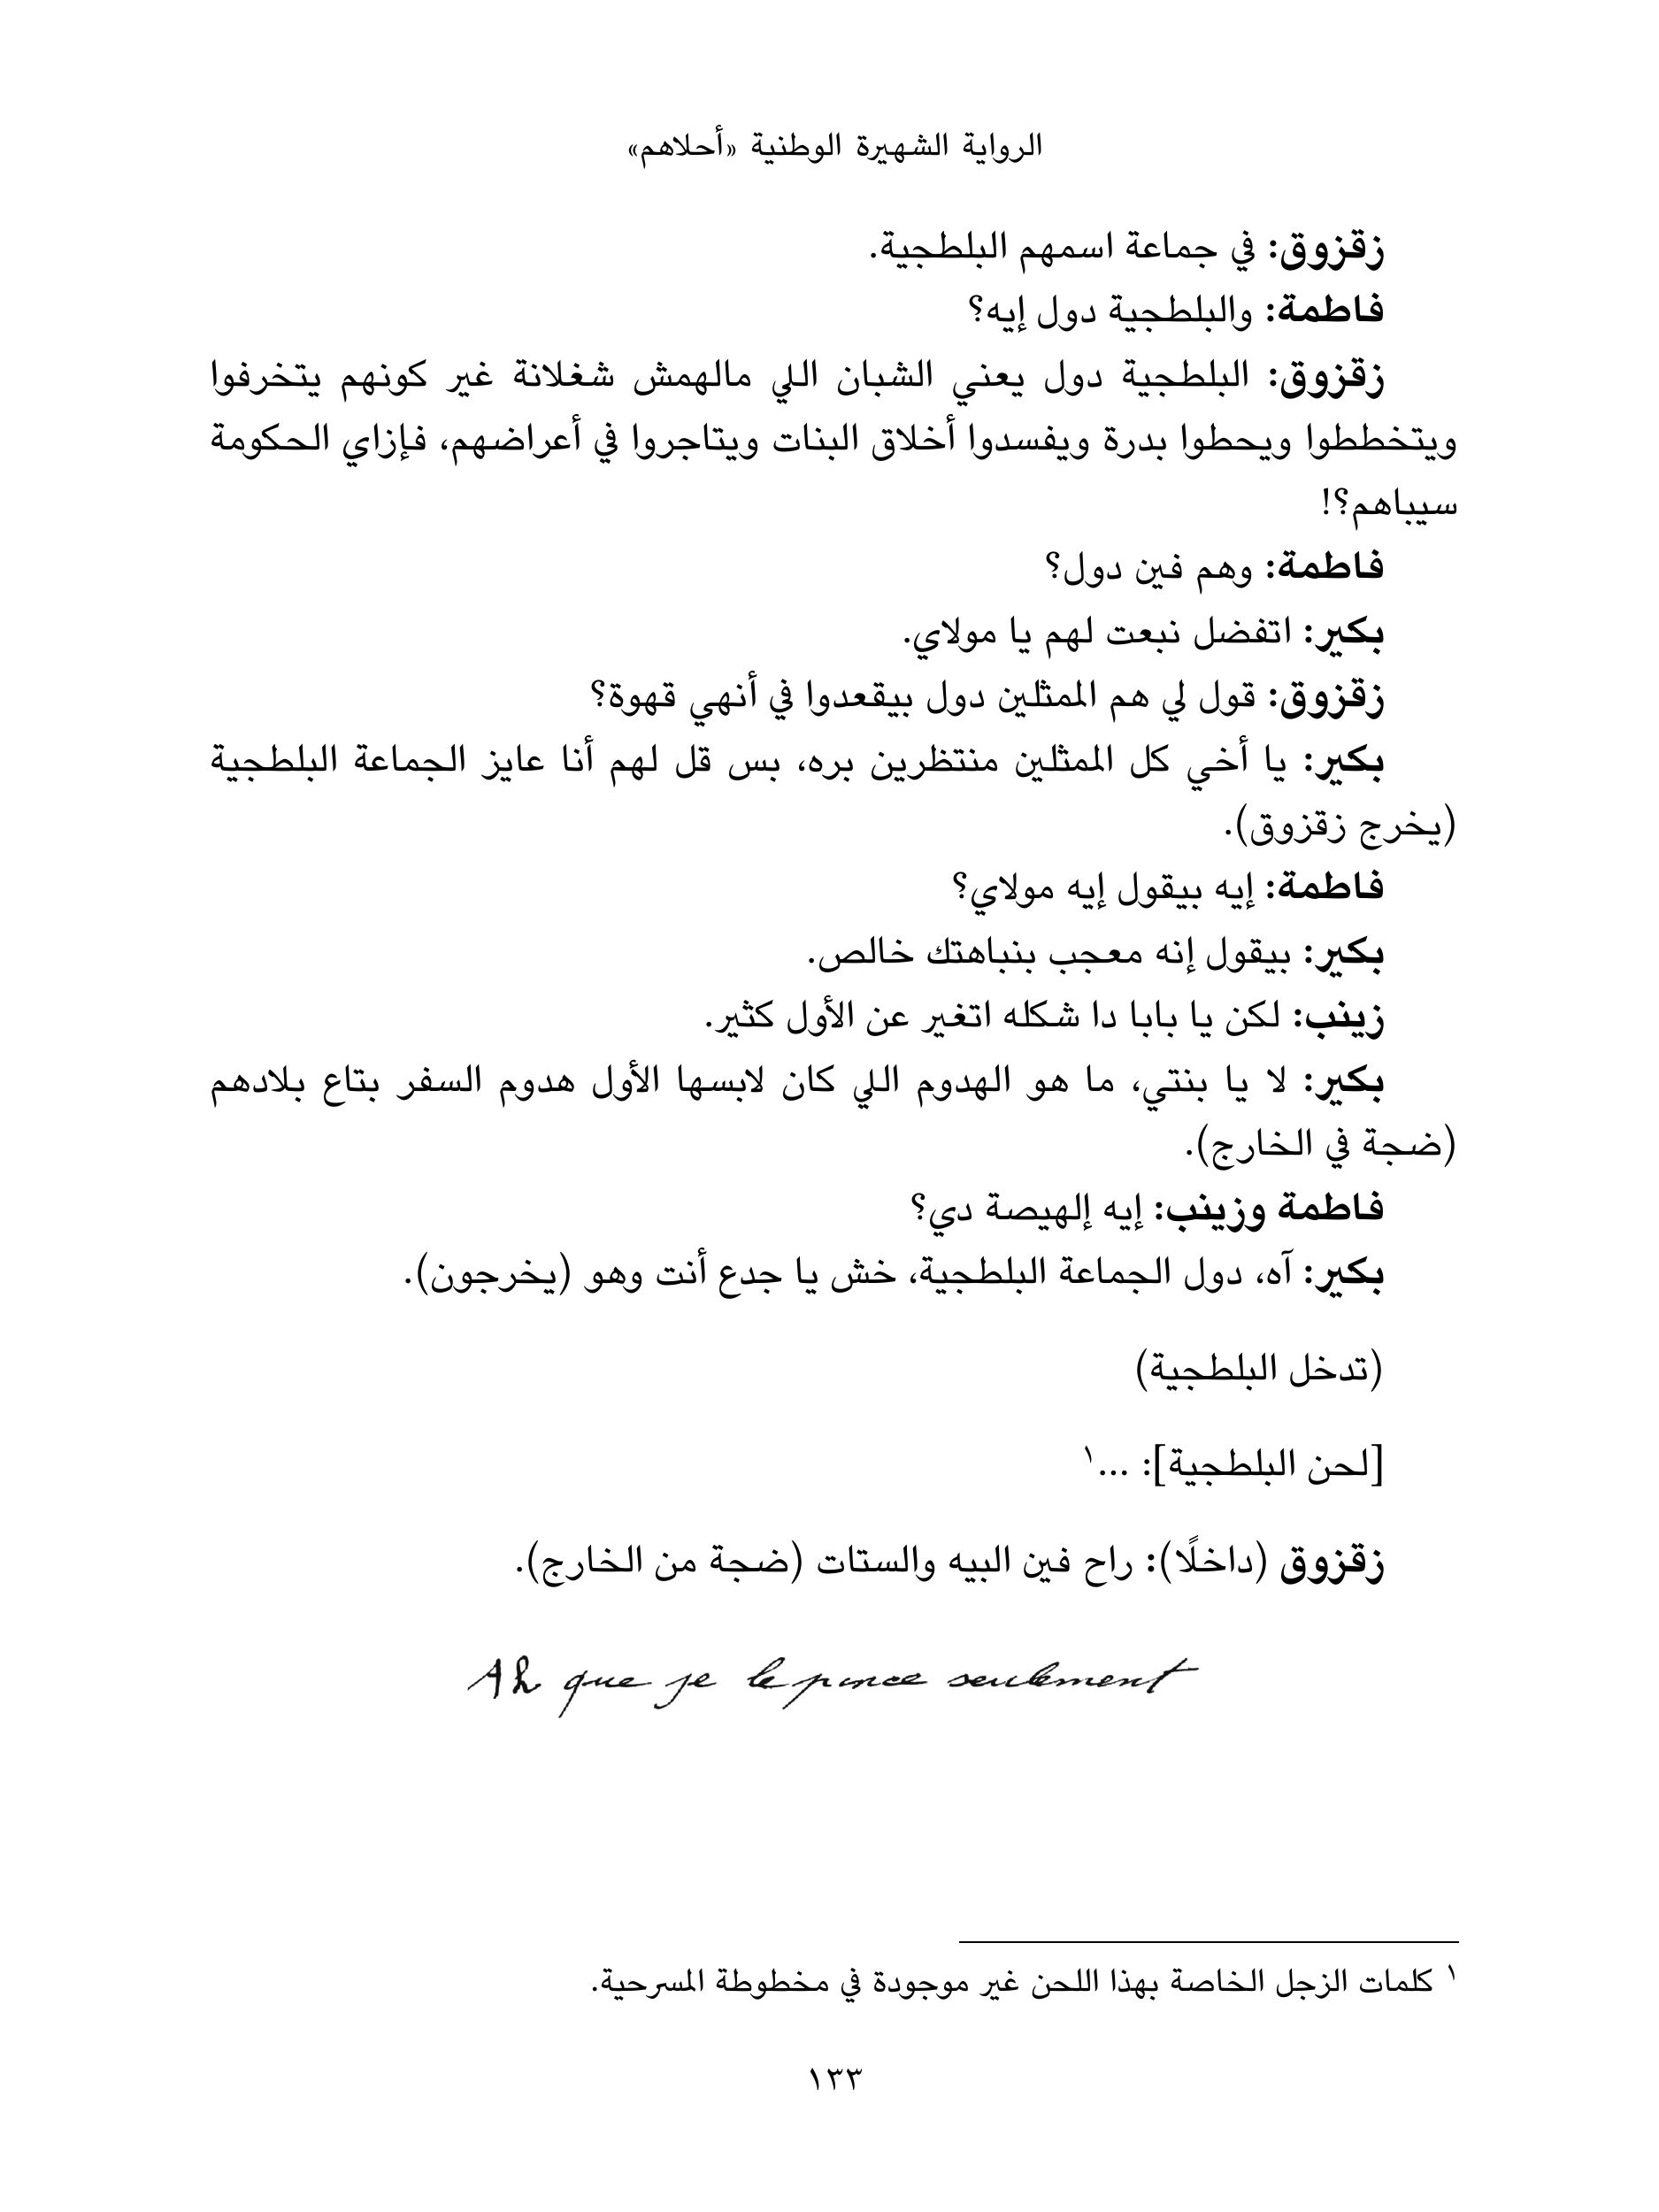 الرواية الشهيرة الوطنية «أحلاهم»
زقزوق: في جماعة اسمهم البلطجية.
فاطمة: والبلطجية دول إيه؟
زقزوق: البلطجية دول يعني الشبان اللي مالهمش شغلانة غير كونهم يتخرفوا
ويتخططوا ويحطوا بدرة ويفسدوا أخلاق البنات ويتاجروا في أعراضهم، فإزاي الحكومة
سيباهم؟!
فاطمة: وهم فين دول؟
بكير: اتفضل نبعت لهم يا مولاي.
زقزوق: قول لي هم الممثلين دول بيقعدوا في أنهي قهوة؟
بكير: يا أخي كل الممثلين منتظرين بره، بس قل لهم أنا عايز الجماعة البلطجية
(يخرج زقزوق).
فاطمة: إيه بيقول إيه مولاي؟
بكير: بيقول إنه معجب بنباهتك خالص.
زينب: لكن يا بابا دا شكله اتغير عن الأول كثير.
بكير: لا يا بنتي، ما هو الهدوم اللي كان لابسها الأول هدوم السفر بتاع بلادهم
(ضجة في الخارج).
فاطمة وزينب: إيه إلهيصة دي؟
بكير: آه، دول الجماعة البلطجية، خش يا جدع أنت وهو (يخرجون).
(تدخل البلطجية)
[لحن البلطجية]: …١
زقزوق (داخلًا): راح فين البيه والستات (ضجة من الخارج).
Ah que je le pince seulement
١ كلمات الزجل الخاصة بهذا اللحن غير موجودة في مخطوطة المسرحية.
١٣٣